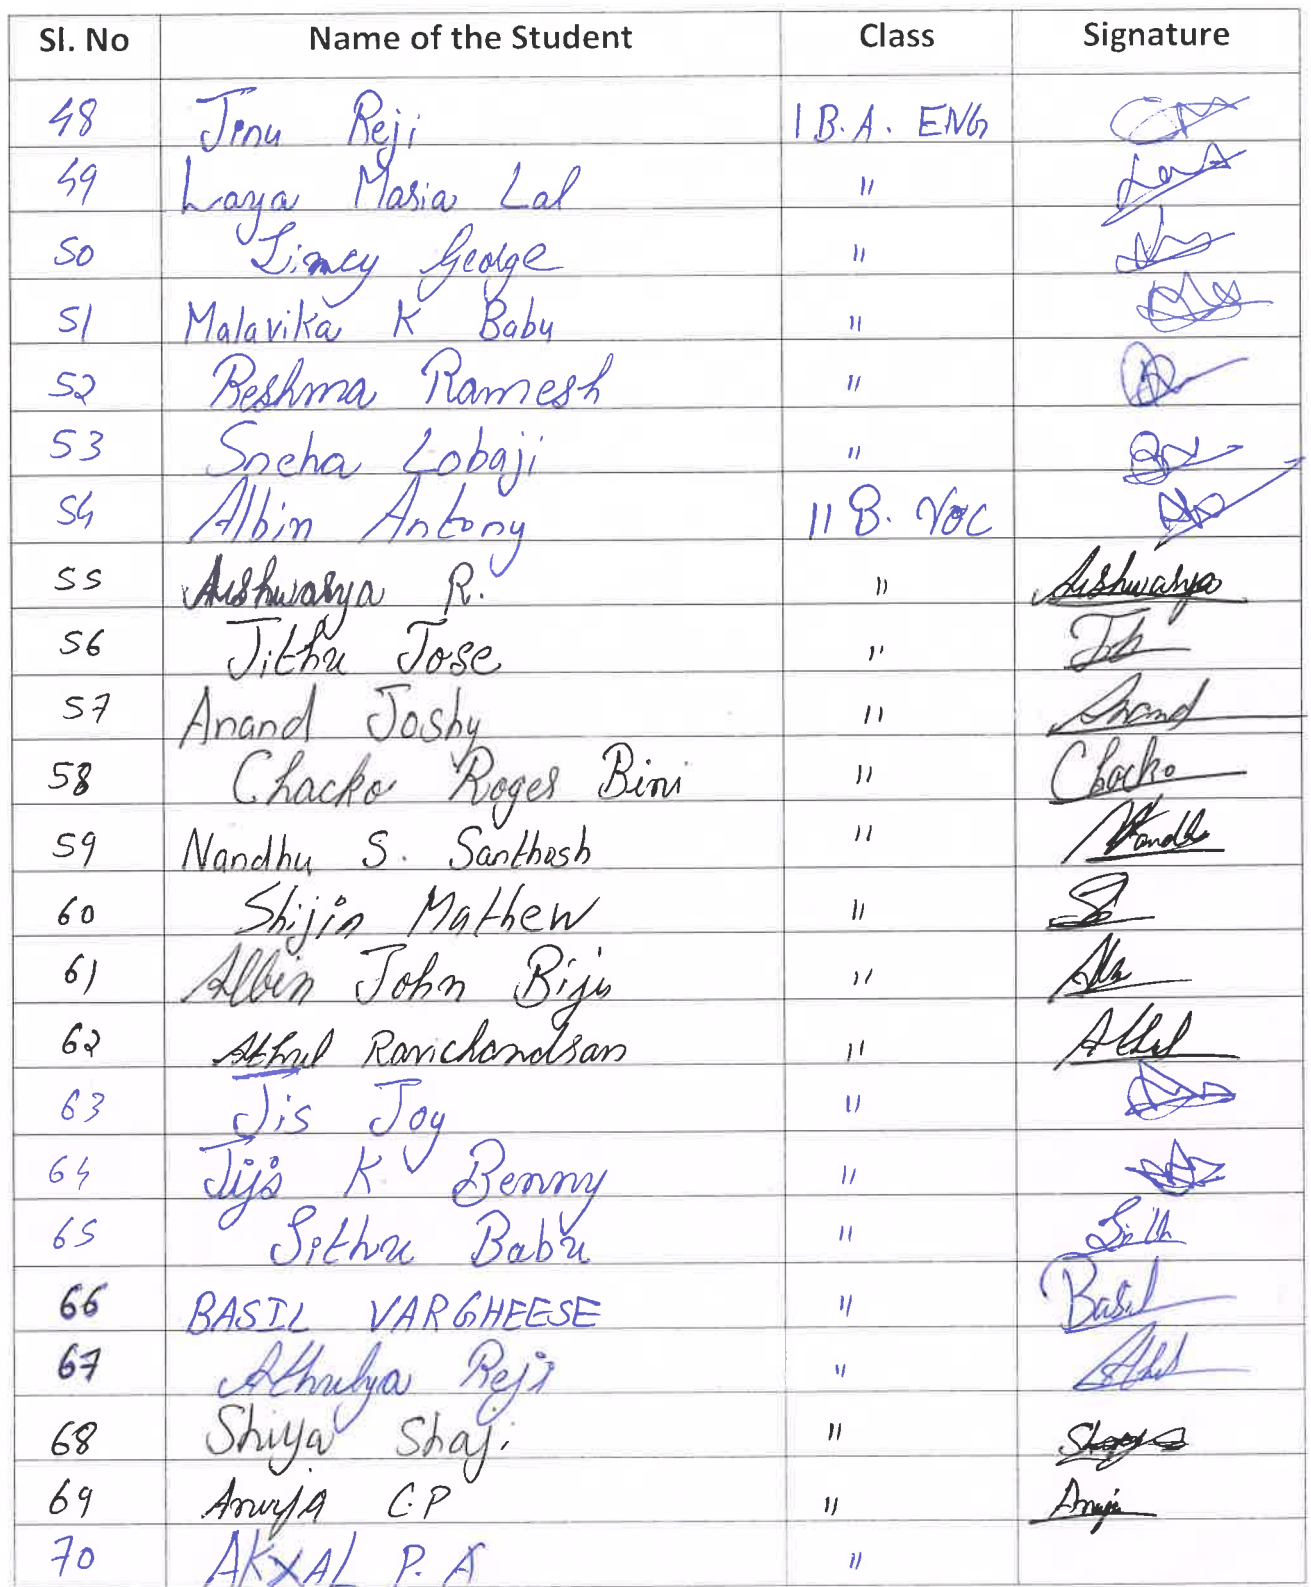 Sl. No Name of the Student Class Signature
48 Jinu Reji I B.A. ENG
49 Laya Maria Lal "
50 Limcy George "
51 Malavika K Babu "
52 Reshma Ramesh "
53 Sneha Lobaji "
54 Albin Antony II B. Voc
55 Aishwarya R. " Aishwarya
56 Jithu Jose "
57 Anand Joshy " Anand
58 Chacko Roger Bini " Chacko
59 Nandhu S. Santhosh "
60 Shijin Mathew "
61 Albin John Biju "
62 Athul Ravichandran "
63 Jis Joy "
64 Jijs K Benny "
65 Sithu Babu "
66 BASIL VARGHEESE " Basil
67 Athulya Reji "
68 Shiya Shaji "
69 Anuja C.P "
70 P. A "